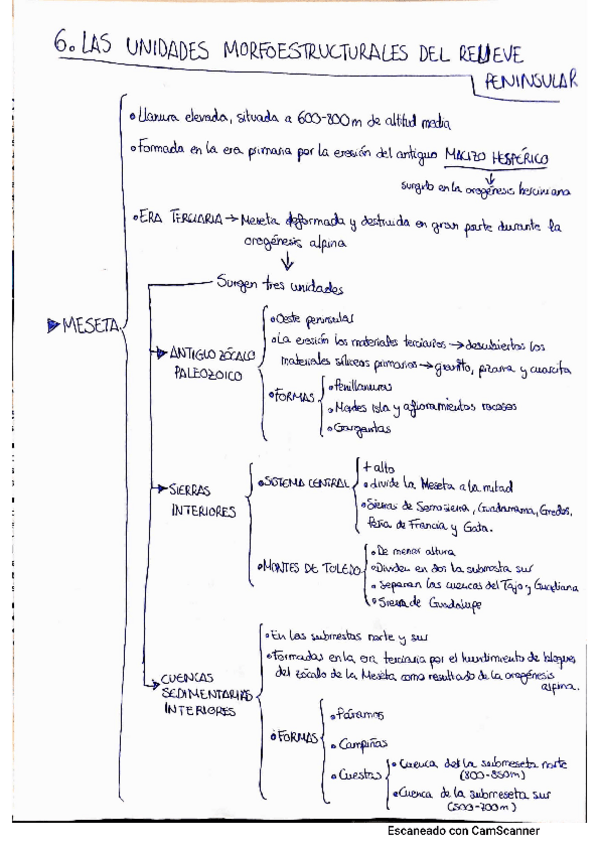 6. LAS UNIDADES MORFOESTRUCTURALES DEL RELIEVE
PENINSULAR
• Llanura elevada, situada a 600-800m de altitud media
• Formada en la era primaria por la erosión del antiguo MACIZO HESPÉRICO
surgido en la orogénesis herciniana
• ERA TERCIARIA → Meseta deformada y destruida en gran parte durante la
orogénesis alpina
Surgen tres unidades
MESETA
ANTIGUO ZÓCALO
PALEOZOICO
• Oeste peninsular
• La erosión los materiales terciarios → descubiertos los
materiales silíceos primarios → granito, pizarra y cuarcita
• FORMAS
• Penillanuras
• Montes Isla y afloramientos rocosos
• Gargantas
SIERRAS
INTERIORES
• SISTEMA CENTRAL
+ alto
• divide la Meseta a la mitad
• Sierras de Somosierra, Guadarrama, Gredos,
Peña de Francia y Gata.
• MONTES DE TOLEDO
• De menor altura
• Dividen en dos la submeseta sur
• separan las cuencas del Tajo y Guadiana
• Sierra de Guadalupe
CUENCAS
SEDIMENTARIAS
INTERIORES
• En las submesetas norte y sur
• Formadas en la era terciaria por el hundimiento de bloques
del zócalo de la Meseta como resultado de la orogénesis
alpina.
• FORMAS
• Páramos
• Campiñas
• Cuestas
• Cuenca de la submeseta norte
(800-850m)
• Cuenca de la submeseta sur
(500-700m)
Escaneado con CamScanner